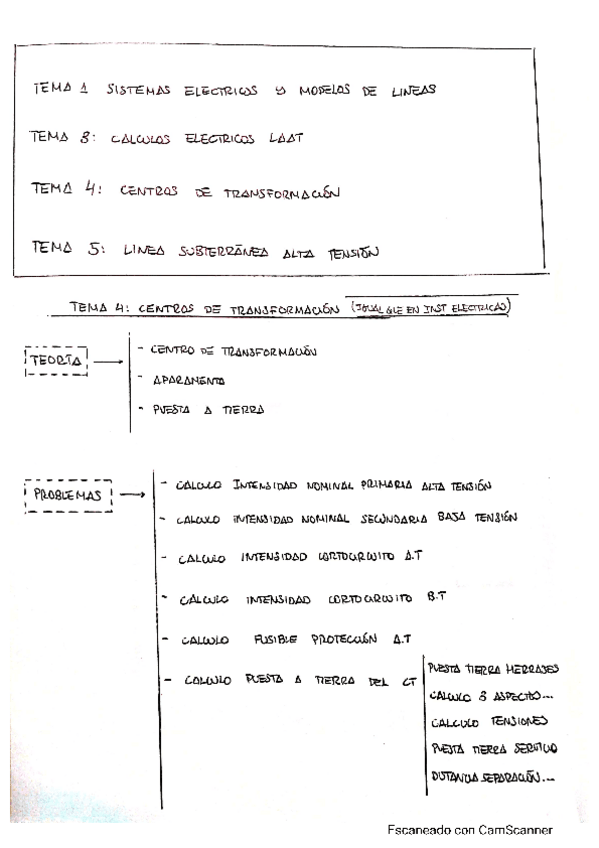 TEMA 1 SISTEMAS ELECTRICOS Y MODELOS DE LINEAS
TEMA 3: CALCULOS ELECTRICOS LAAT
TEMA 4: CENTROS DE TRANSFORMACIÓN
TEMA 5: LINEA SUBTERRÁNEA ALTA TENSIÓN
TEMA 4: CENTROS DE TRANSFORMACIÓN (IGUAL QUE EN INST ELECTRICAS)
TEORIA
- CENTRO DE TRANSFORMACIÓN
- APARAMENTA
- PUESTA A TIERRA
PROBLEMAS
- CALCULO INTENSIDAD NOMINAL PRIMARIA ALTA TENSIÓN
- CALCULO INTENSIDAD NOMINAL SECUNDARIA BAJA TENSIÓN
- CALCULO INTENSIDAD CORTOCIRCUITO A.T
- CALCULO INTENSIDAD CORTOCIRCUITO B.T
- CALCULO FUSIBLE PROTECCIÓN A.T
- CALCULO PUESTA A TIERRA DEL CT
PUESTA TIERRA HERRAJES
CALCULO 3 ASPECTOS...
CALCULO TENSIONES
PUESTA TIERRA SERVICIO
DISTANCIA SEPARACIÓN...
Escaneado con CamScanner